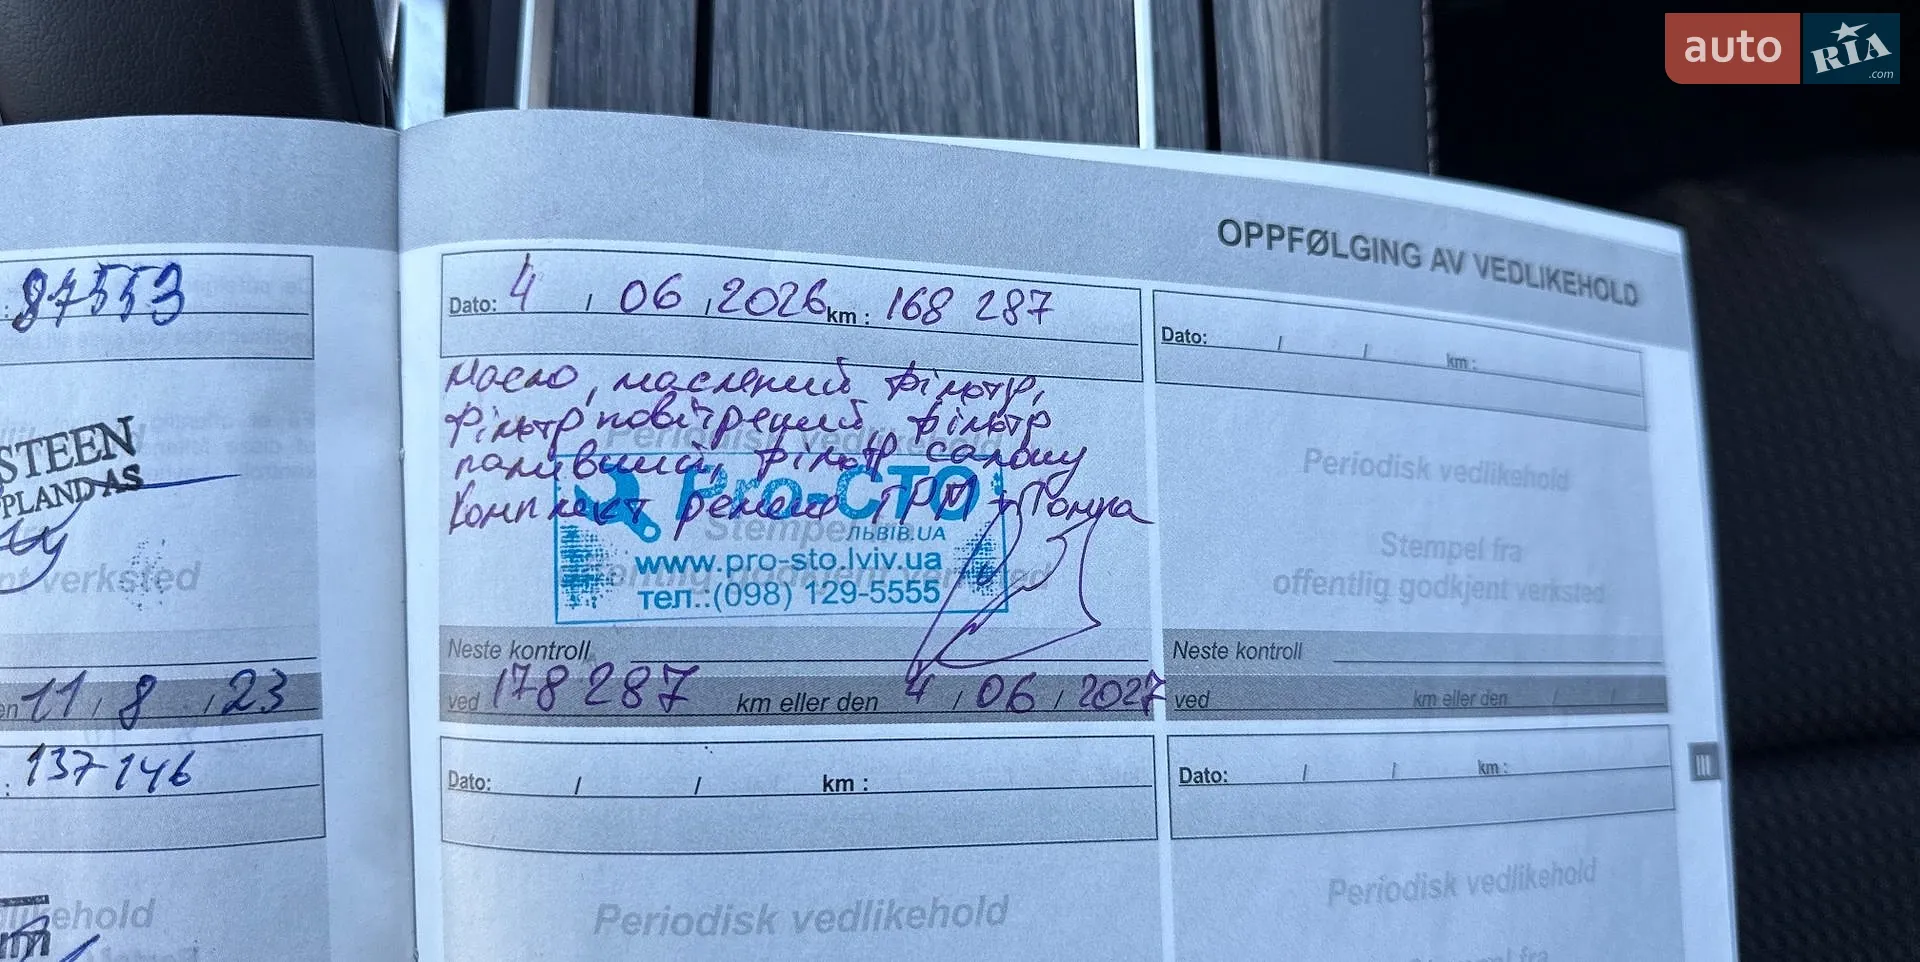 auto RIA.com
OPPFØLGING AV VEDLIKEHOLD
: 87553
STEEN
PLAND AS
verksted
11 / 8 / 23
: 137 146
Dato: 4 / 06 / 2026 km : 168 287
Масло, масляний фільтр,
фільтр повітряний фільтр
паливний, фільтр салону
Комплект ременю ГРМ + Помпа
Periodisk vedlikehold
Pro-СТО
ЛЬВІВ.UA
www.pro-sto.lviv.ua
тел.:(098) 129-5555
Neste kontroll
ved 178 287 km eller den 4 / 06 / 2027
Dato: / / km :
Periodisk vedlikehold
Stempel fra
offentlig godkjent verksted
Neste kontroll
ved km eller den / /
III
Dato: / / km :
Periodisk vedlikehold
Dato: / / km :
Periodisk vedlikehold